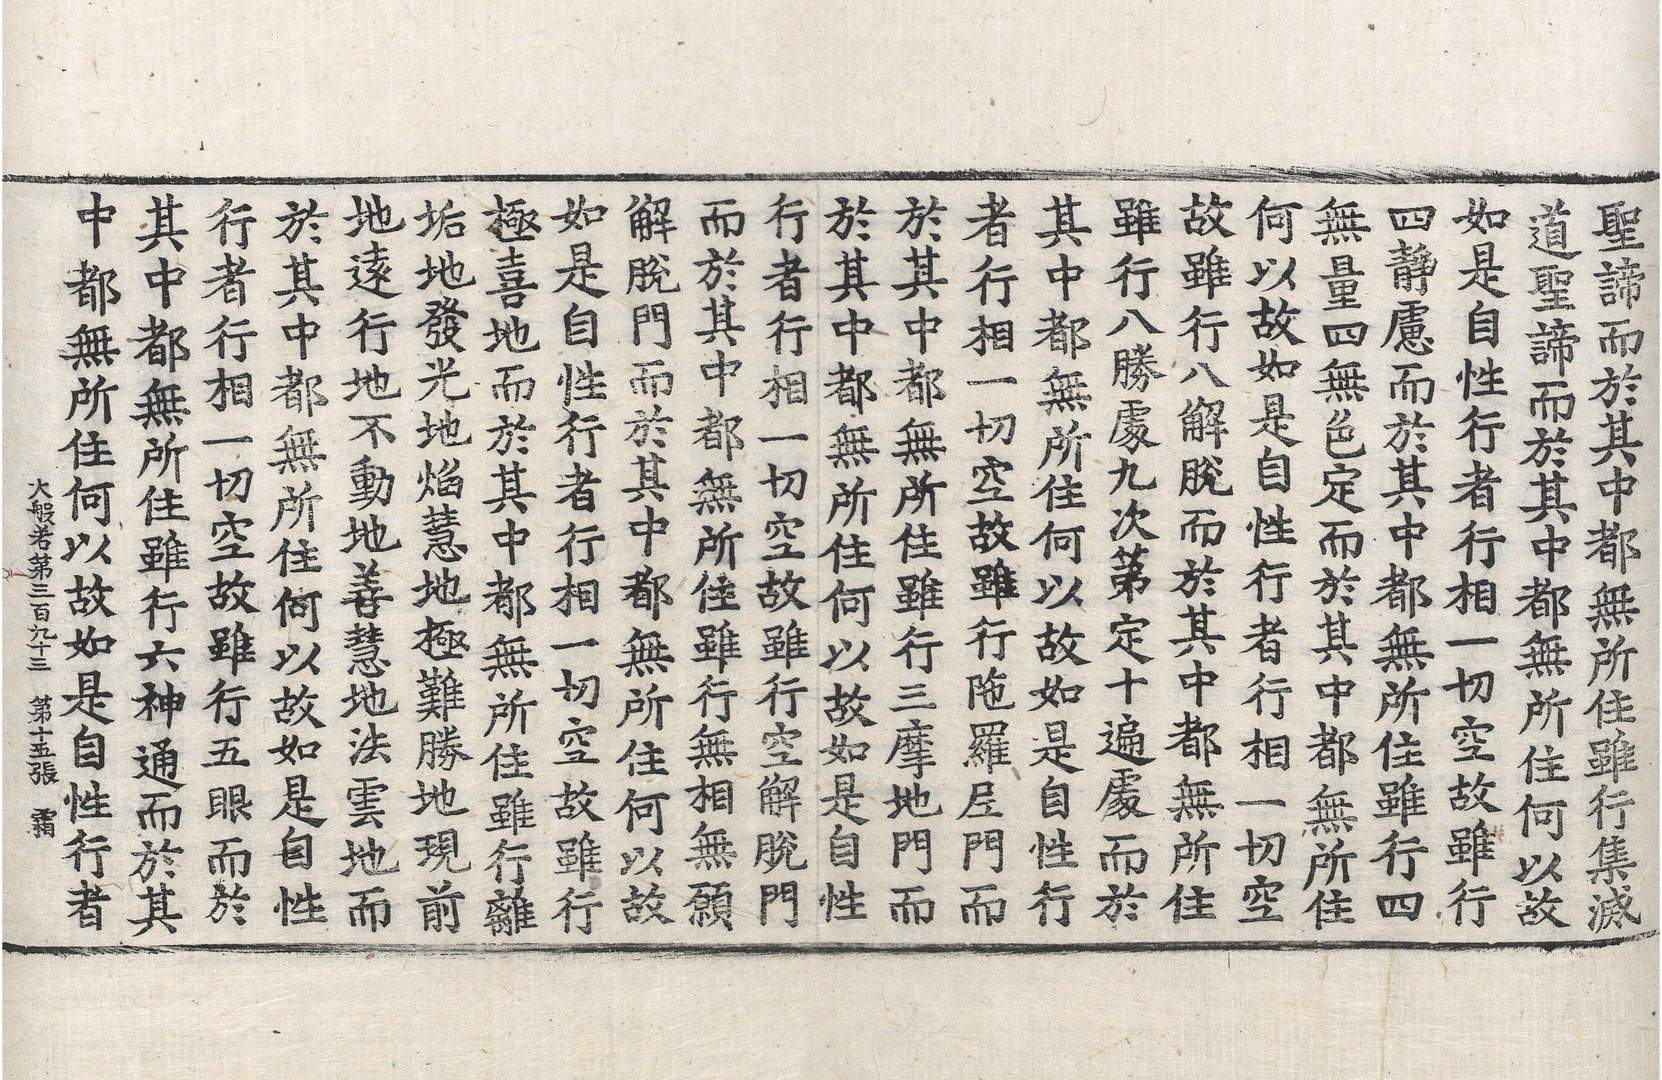 聖諦而於其中都無所住雖行集滅
道聖諦而於其中都無所住何以故
如是自性行者行相一切空故雖行
四靜慮而於其中都無所住雖行四
無量四無色定而於其中都無所住
何以故如是自性行者行相一切空
故雖行八解脫而於其中都無所住
雖行八勝處九次第定十遍處而於
其中都無所住何以故如是自性行
者行相一切空故雖行陁羅尼門而
於其中都無所住雖行三摩地門而
於其中都無所住何以故如是自性
行者行相一切空故雖行空解脫門
而於其中都無所住雖行無相無願
解脫門而於其中都無所住何以故
如是自性行者行相一切空故雖行
極喜地而於其中都無所住雖行離
垢地發光地焰慧地極難勝地現前
地遠行地不動地善慧地法雲地而
於其中都無所住何以故如是自性
行者行相一切空故雖行五眼而於
其中都無所住雖行六神通而於其
中都無所住何以故如是自性行者
大般若第三百九十三 第十五張 霜